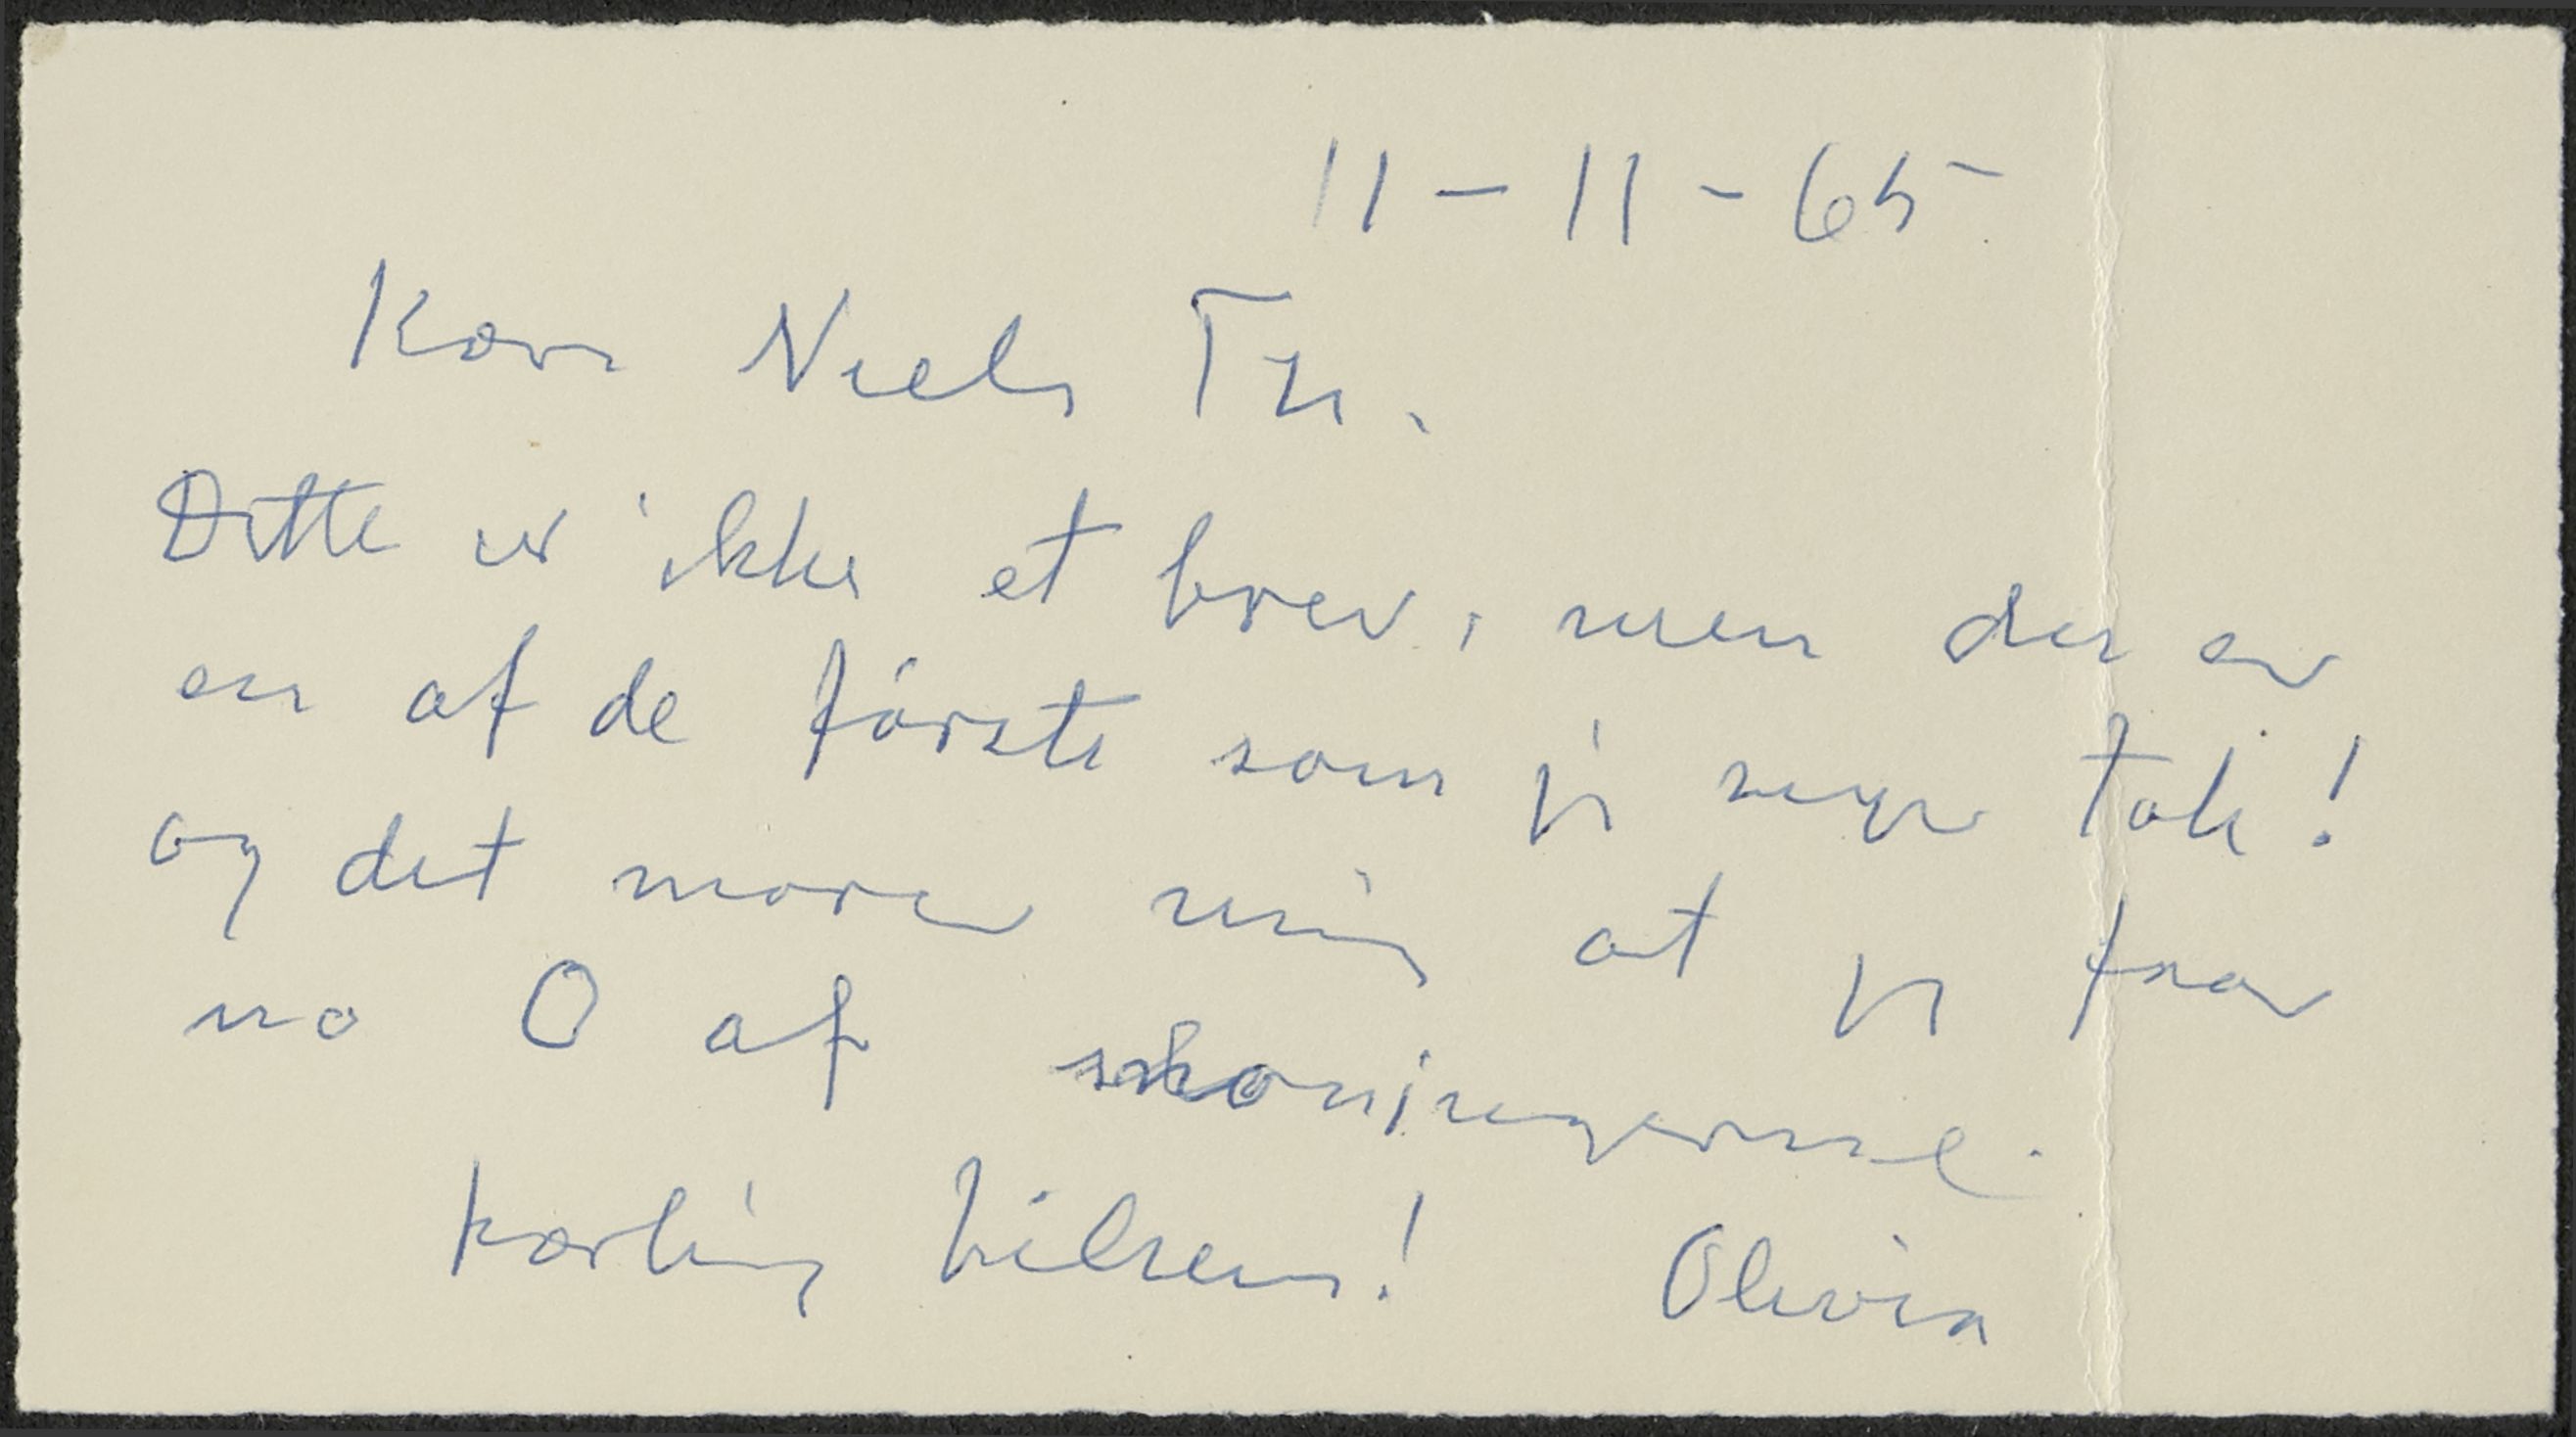 11 - 11 - 65
Kære Niels Th.
Dette er ikke et brev, men der er
en af de første som jeg siger tak!
og det morer mig at jeg
no 0 af
kærlig hilsen! Olivia